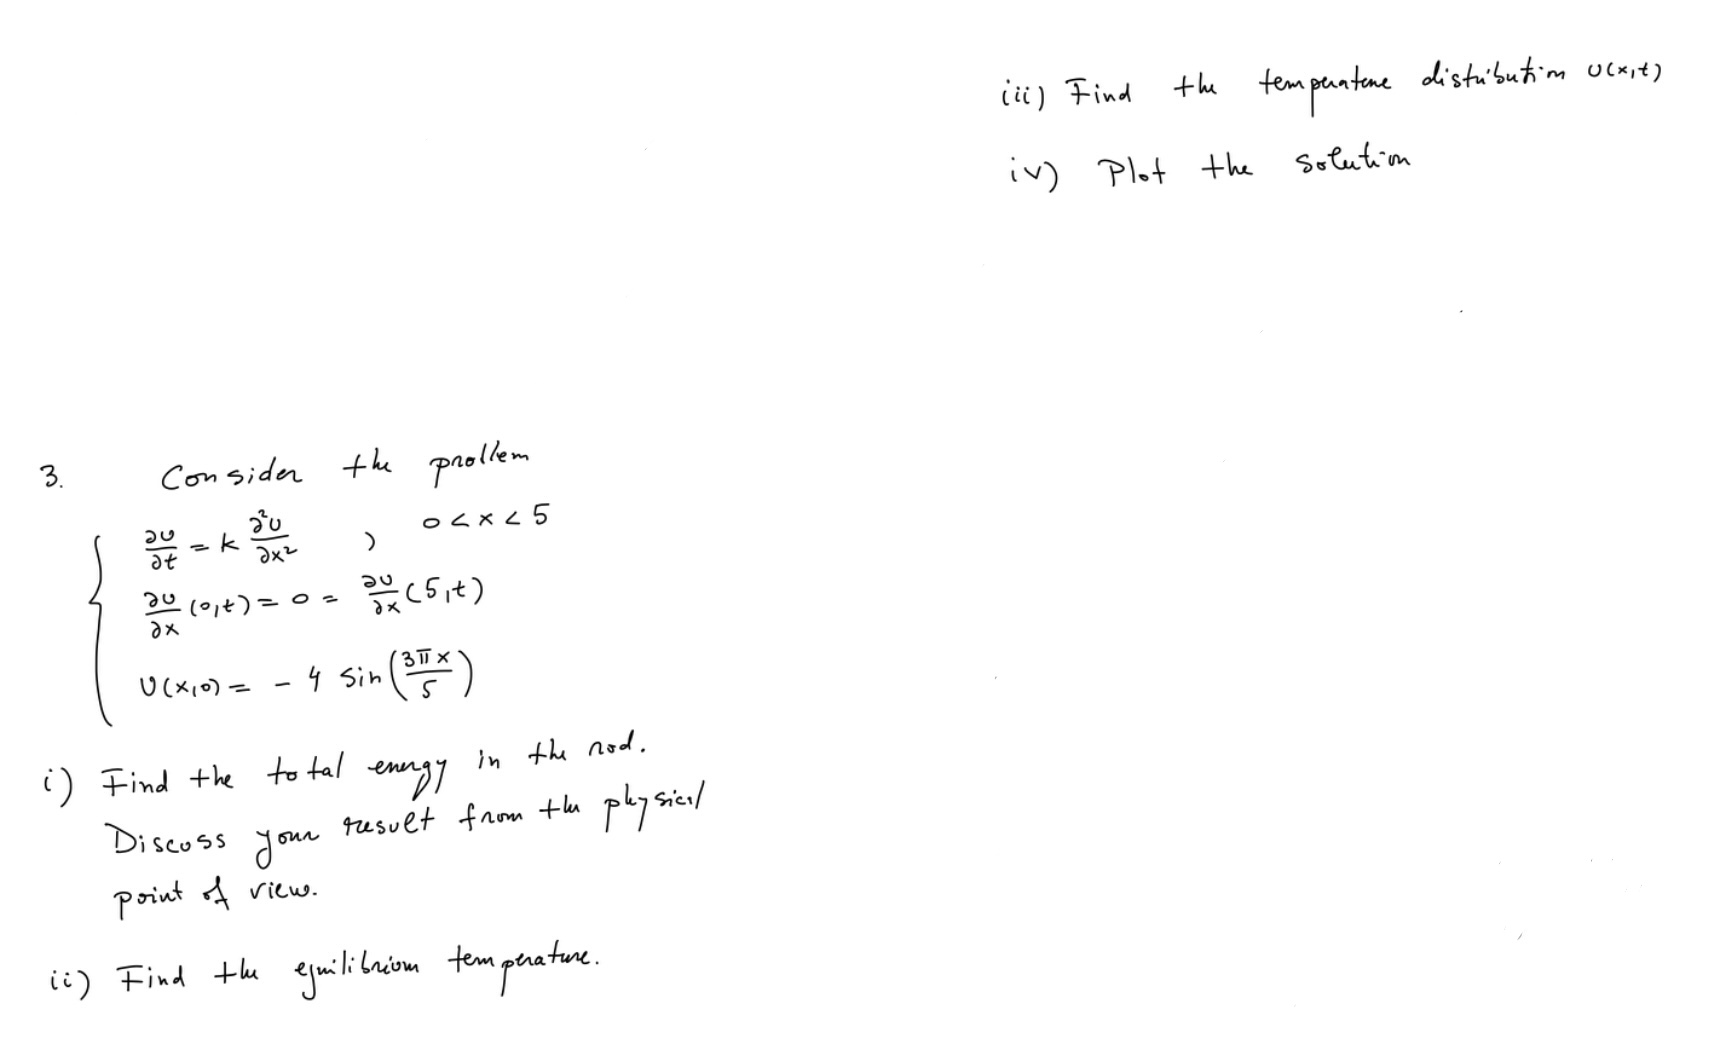 3. Consider the problem
∂U/∂t = k ∂²U/∂x² , 0 < x < 5
∂U/∂x (0,t) = 0 = ∂U/∂x (5,t)
U(x,0) = - 4 sin(3πx/5)
i) Find the total energy in the rod.
Discuss your result from the physical
point of view.
ii) Find the equilibrium temperature.
iii) Find the temperature distribution U(x,t)
iv) Plot the solution